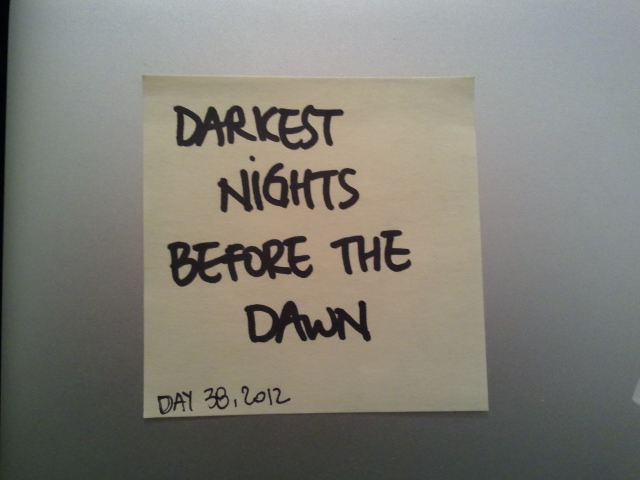 DARKEST
NiGHTS
BEFORE THE
DAWN
DAY 38, 2012